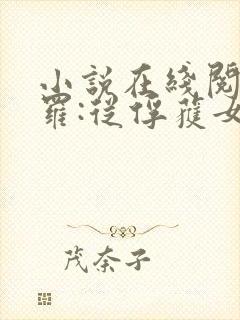 小說在綫閱
羅:從俘獲女
茂奈子